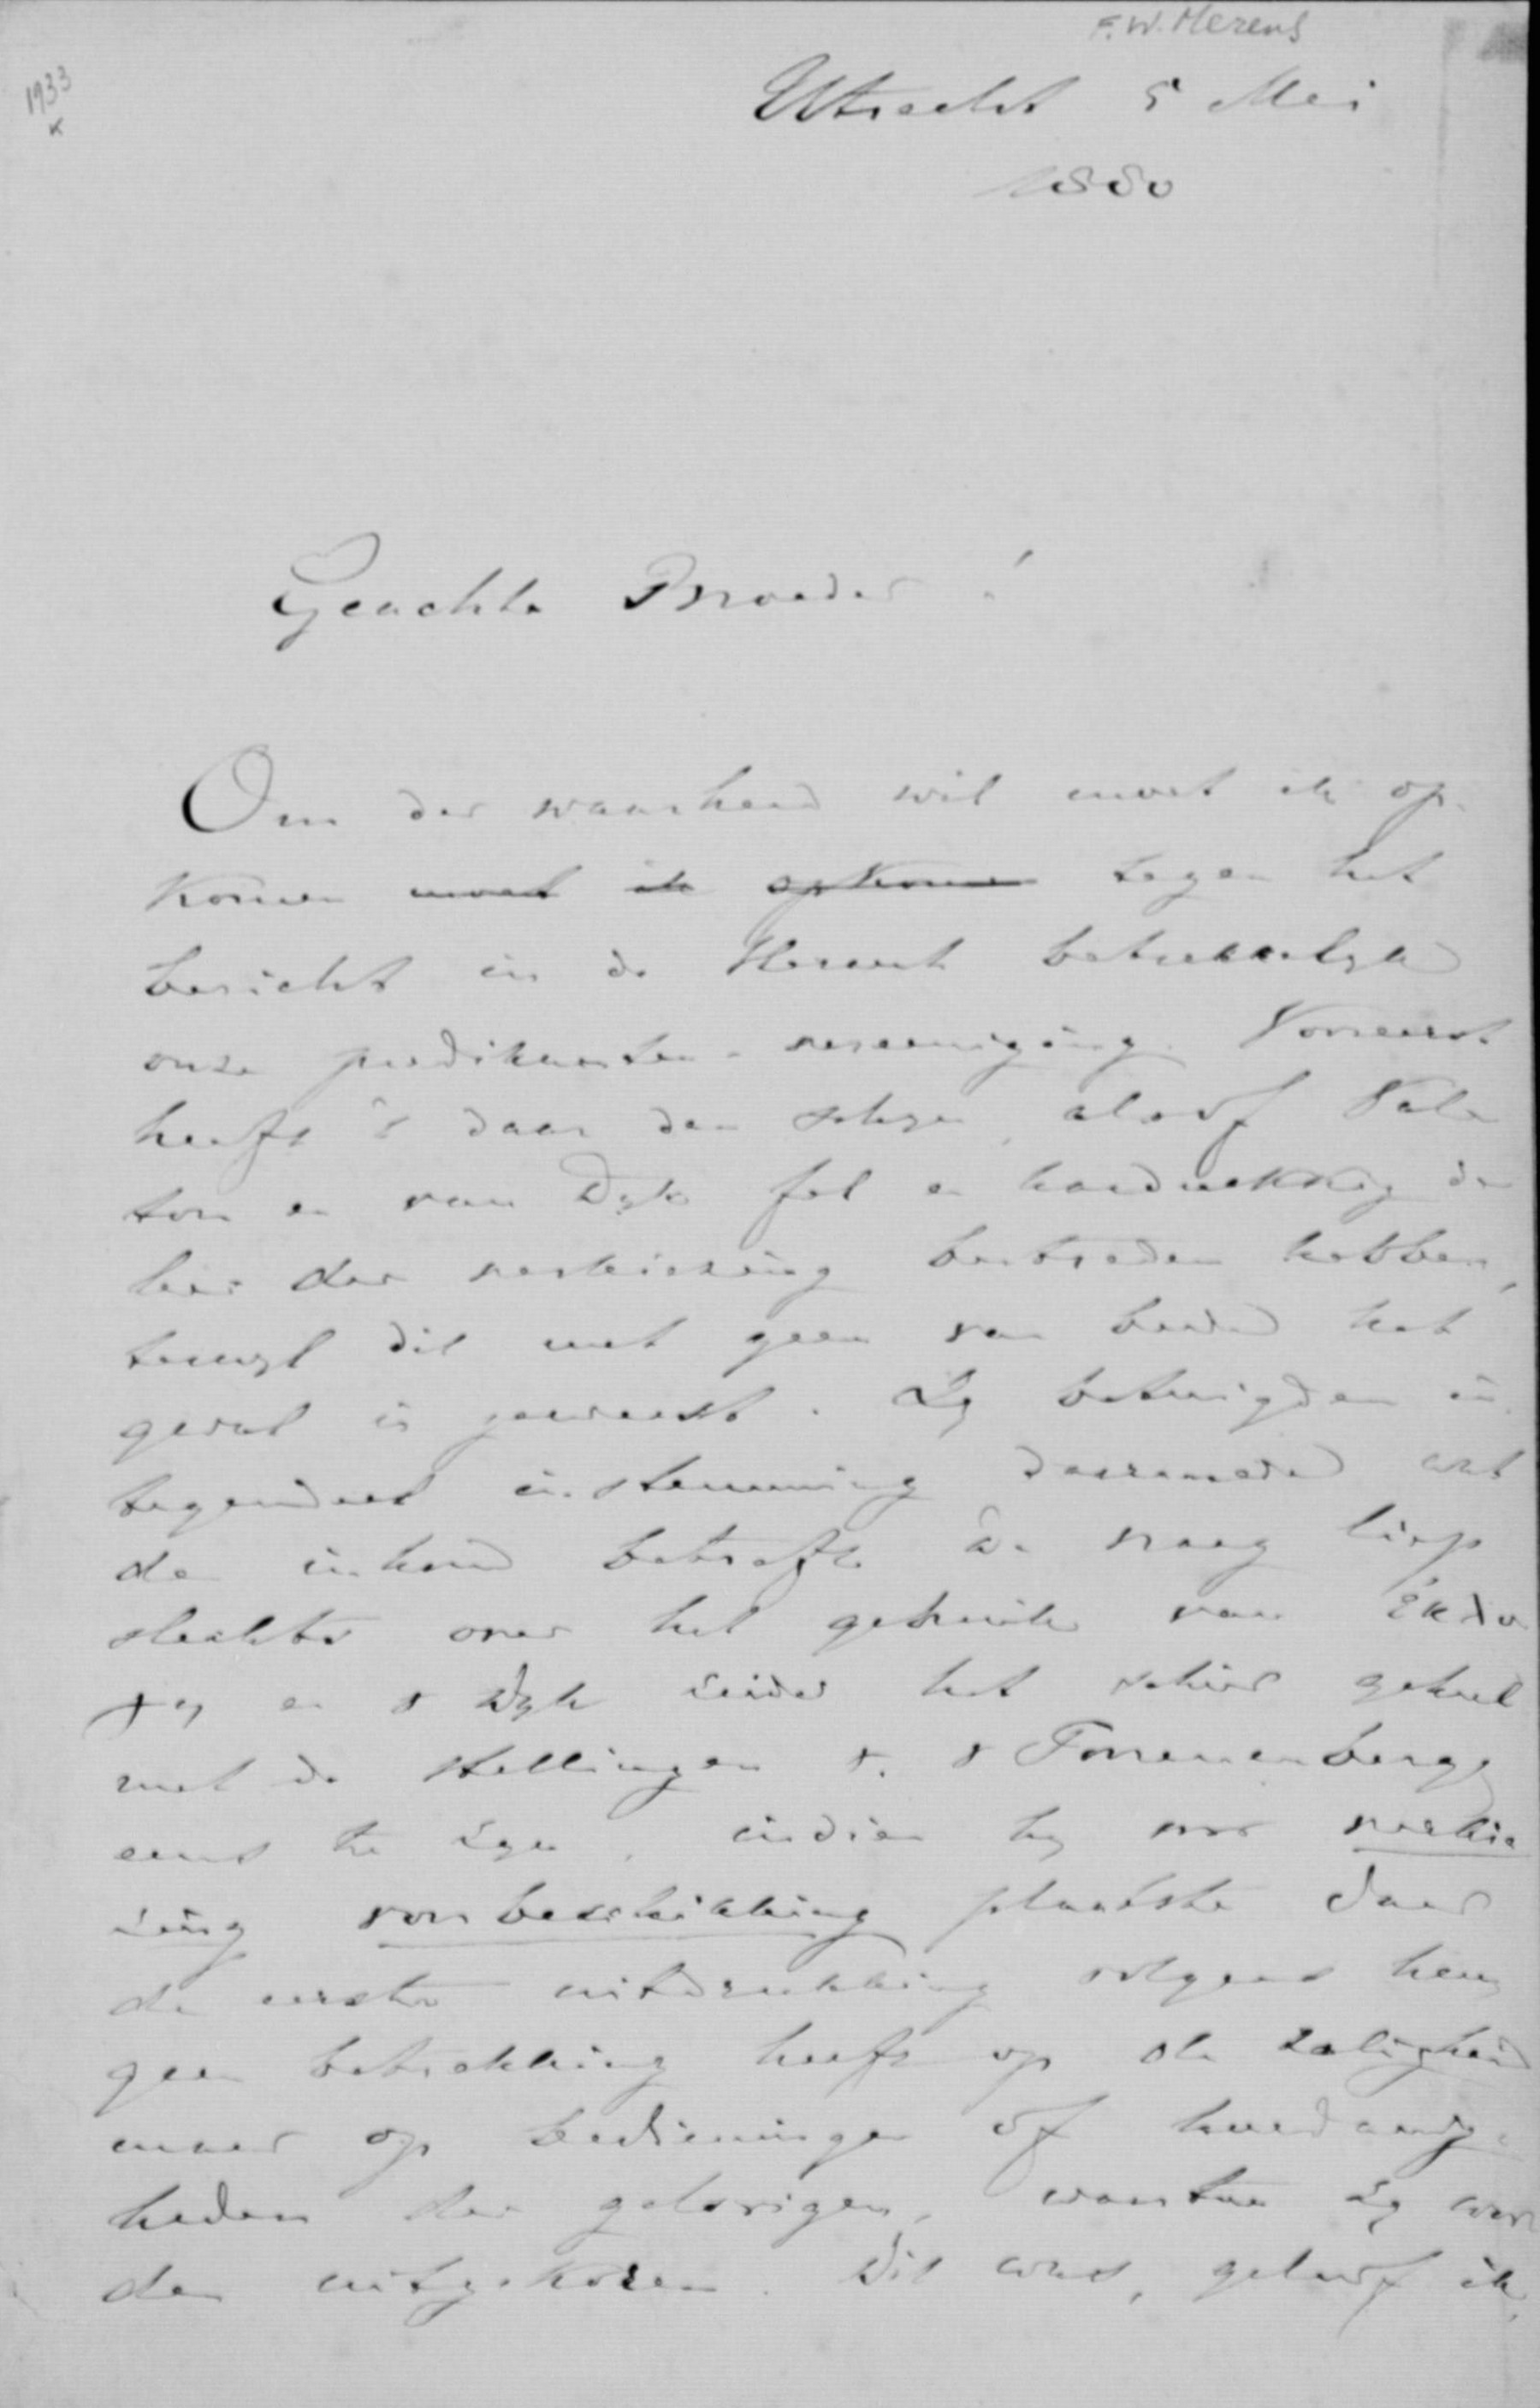 F.W. Merens
1933
K
Utrecht 5 Mei
1880
Geachte Broeder!
Om der waarheid wil moet ik op-
komen moet ik opkomen tegen het
bericht in de Heraut betrekkelijk
onze predikanten-vereeniging. Vooreerst
heeft 't daar den schijn, alsof Vale
ton en van Dijk fel en hardnekkig de
leer der verkiezing bestreden hebben,
terwijl dit met geen van beide het
geval is geweest. Zij betuigden in
tegendeel instemming daarmede wat
de inhoud betreft de vraag liep
slechts over het gebruik van ἐκλο
γη en v Dijk zeide het schier geheel
met de stellingen v. v Toorenenbergen
eens te zijn, indien hij voor verkie
zing voorbeschikking plaatste daar
de eerste uitdrukking volgens hem
geen betrekking heeft op de zaligheid
maar op bedieningen of hoedanig-
heden der geloovigen, waartoe zij wor
den uitgekozen. Dit was, geloof ik,